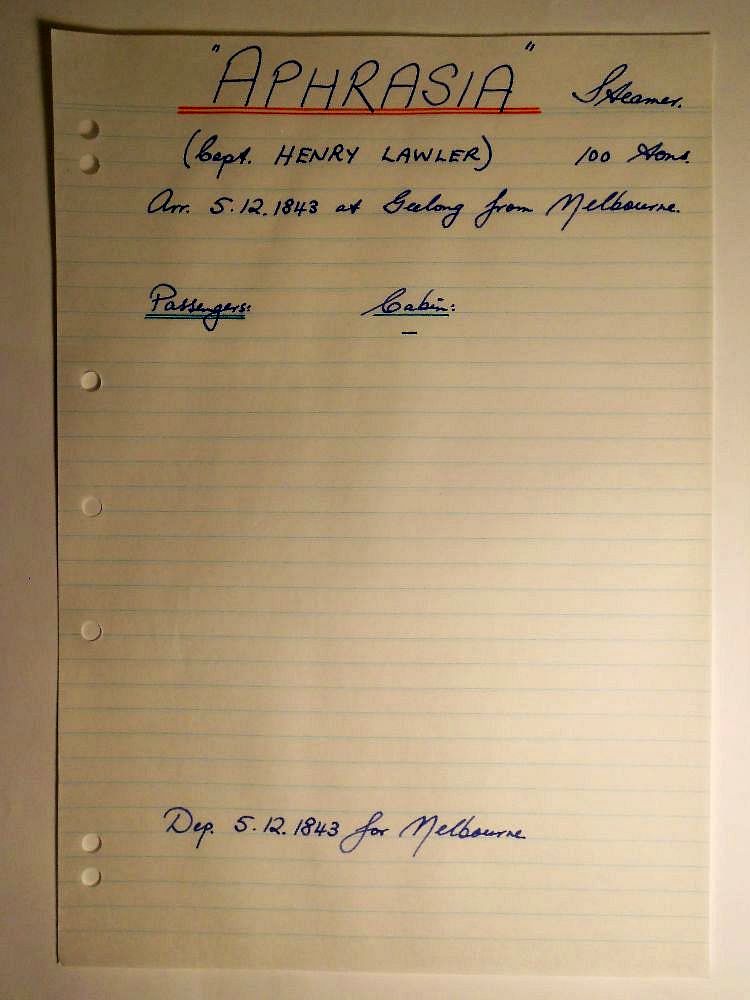 "APHRASIA" Steamer.
(Capt. HENRY LAWLER) 100 tons.
Arr. 5.12.1843 at Geelong from Melbourne.
Passengers: Cabin:
—
Dep. 5.12.1843 for Melbourne